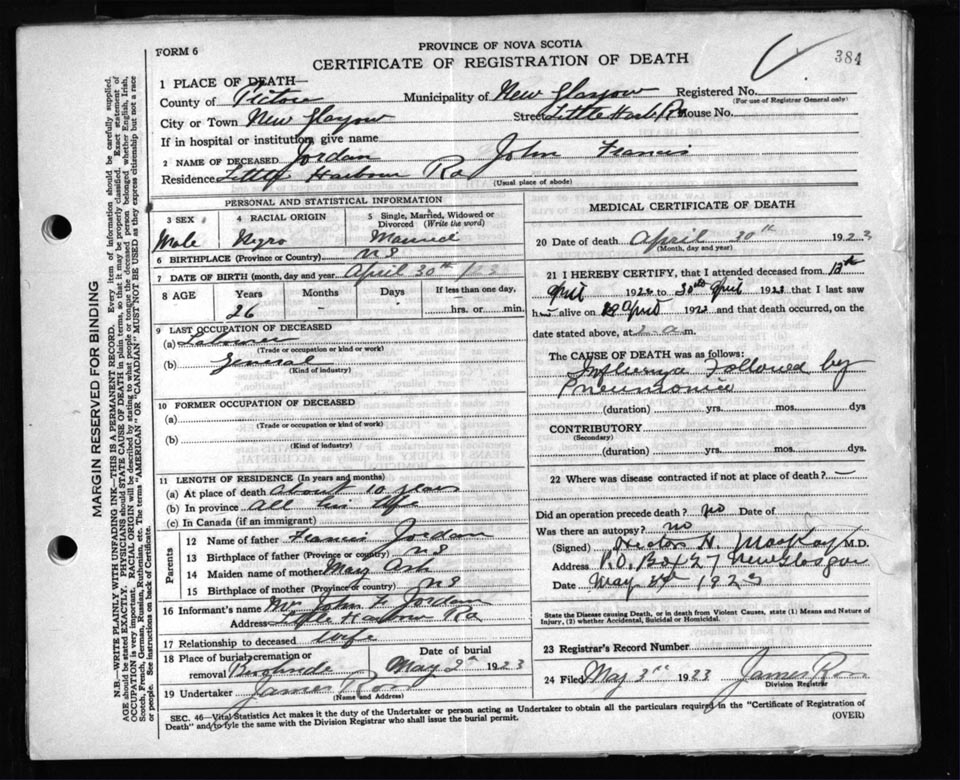 FORM 6
PROVINCE OF NOVA SCOTIA
CERTIFICATE OF REGISTRATION OF DEATH
384
1 PLACE OF DEATH—
County of Pictou Municipality of New Glasgow Registered No.
(For use of Registrar General only)
City or Town New Glasgow Street Little Harb. Rd House No.
If in hospital or institution, give name
2 NAME OF DECEASED Jordan John Francis
Residence Little Harbour Rd
(Usual place of abode)
PERSONAL AND STATISTICAL INFORMATION
3 SEX Male
4 RACIAL ORIGIN Negro
5 Single, Married, Widowed or Divorced (Write the word) Married
6 BIRTHPLACE (Province or Country) NS
7 DATE OF BIRTH (month, day and year) April 30th /23
8 AGE Years 26 Months — Days — If less than one day, hrs. or min.
9 LAST OCCUPATION OF DECEASED
(a) Labourer
(Trade or occupation or kind or work)
(b) General
(Kind of industry)
10 FORMER OCCUPATION OF DECEASED
(a)
(Trade or occupation or kind of work)
(b)
(Kind of industry)
11 LENGTH OF RESIDENCE (In years and months)
(a) At place of death About 10 years
(b) In province All his life
(c) In Canada (if an immigrant)
Parents
12 Name of father Francis Jordan
13 Birthplace of father (Province or country) NS
14 Maiden name of mother May Ash
15 Birthplace of mother (Province or country) NS
16 Informant's name Mrs John F. Jordan
Address Little Harbour Rd
17 Relationship to deceased Wife
18 Place of burial, cremation or removal Date of burial May 2nd 1923
19 Undertaker James Ross
(Name and Address)
MEDICAL CERTIFICATE OF DEATH
20 Date of death April 30th 1923
(Month, day and year)
21 I HEREBY CERTIFY, that I attended deceased from 12th
April 1923 to 30th April 1923 that I last saw
him alive on 29 April 1923 and that death occurred, on the
date stated above, at 2 a.m.
The CAUSE OF DEATH was as follows:
Influenza Followed by
Pneumonia
(duration) yrs. mos. dys
CONTRIBUTORY
(Secondary)
(duration) yrs. mos. dys.
22 Where was disease contracted if not at place of death? —
Did an operation precede death? no Date of
Was there an autopsy? no
(Signed) Hector H. MacKay M.D.
Address P.O. Box 27, New Glasgow
Date May 2nd 1923
State the Disease causing Death, or in death from Violent Causes, state (1) Means and Nature of Injury, (2) whether Accidental, Suicidal or Homicidal.
23 Registrar's Record Number
24 Filed May 3rd 1923 James Ross
Division Registrar
SEC. 46—Vital Statistics Act makes it the duty of the Undertaker or person acting as Undertaker to obtain all the particulars required in the "Certificate of Registration of
Death" and to fyle the same with the Division Registrar who shall issue the burial permit.
(OVER)
MARGIN RESERVED FOR BINDING
N.B.—WRITE PLAINLY WITH UNFADING INK—THIS IS A PERMANENT RECORD. Every item of information should be carefully supplied.
AGE should be stated EXACTLY. PHYSICIANS should STATE CAUSE OF DEATH in plain terms, so that it may be properly classified. Exact statement of
OCCUPATION is very important. RACIAL ORIGIN will be described by stating to what people or tongue the deceased person belonged whether English, Irish,
Scotch, French, German, Russian, Ruthenian, etc. The terms "AMERICAN" or "CANADIAN" MUST NOT BE USED as they express citizenship but not a race
or people. See instructions on back of Certificate.